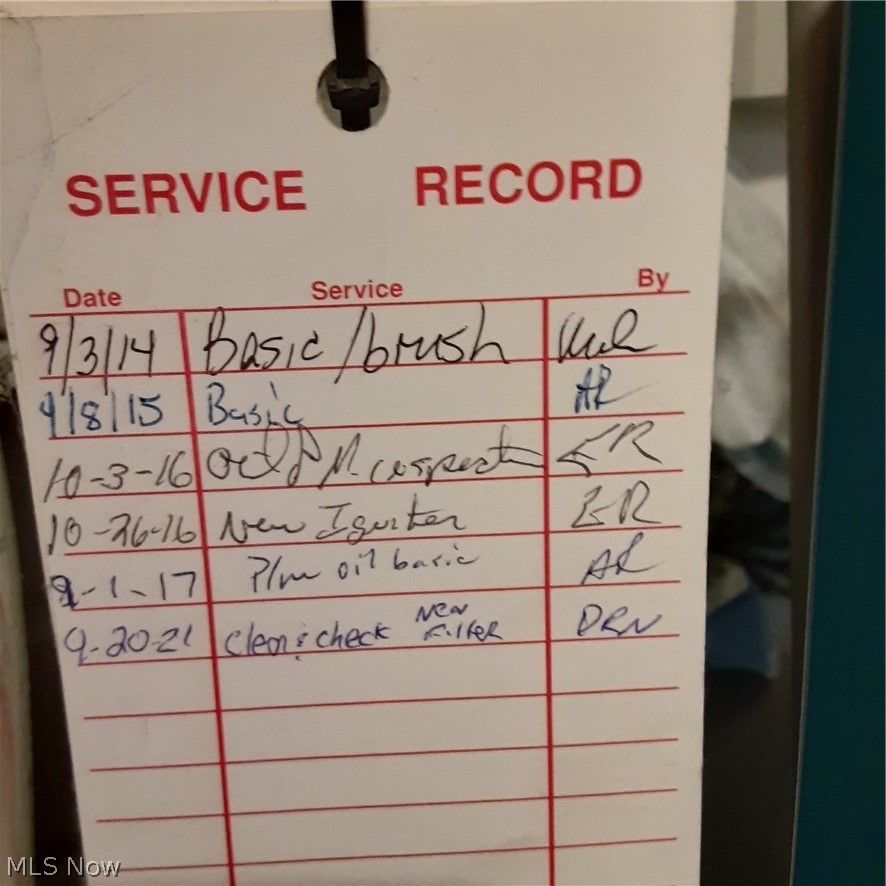 SERVICE RECORD
Date Service By
9/3/14 Basic/brush
9/8/15 Basic AR
10-3-16 P.M. ER
10-26-16 New Igniter ER
9-1-17 P/m oil basic AR
9-20-21 Clean & check New Filter DRN
MLS Now